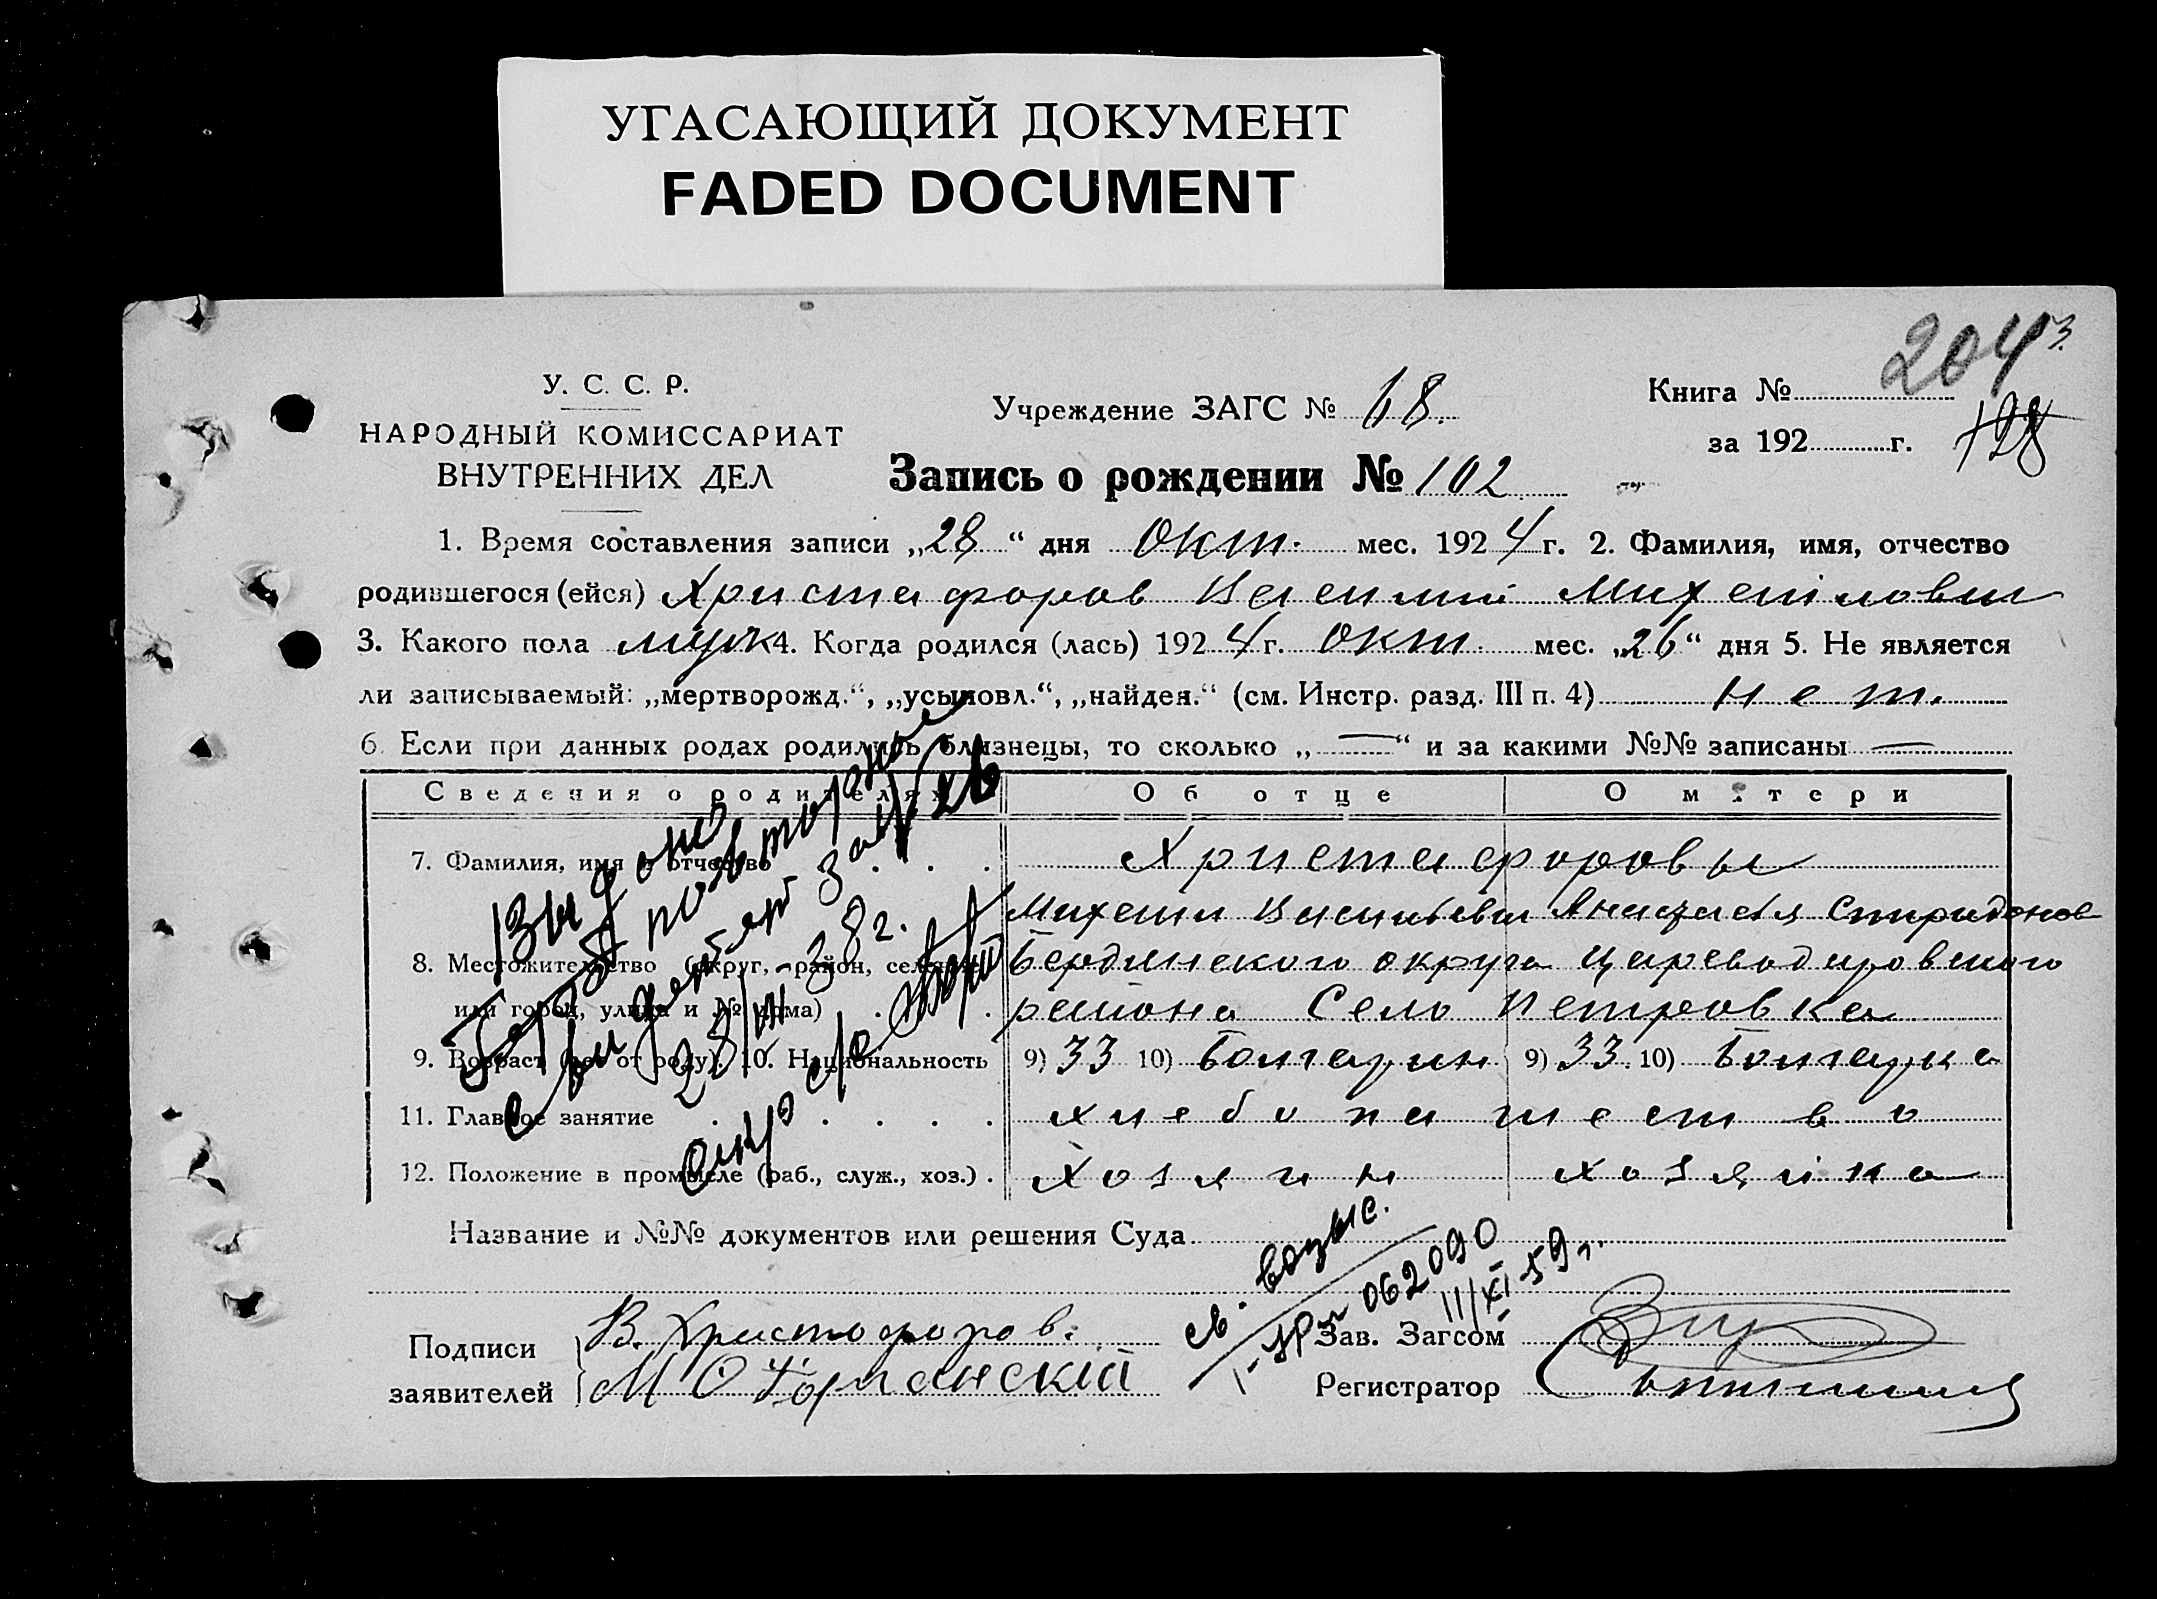 УГАСАЮЩИЙ ДОКУМЕНТ
FADED DOCUMENT
204
У. С. С. Р.
НАРОДНЫЙ КОМИССАРИАТ
ВНУТРЕННИХ ДЕЛ
Учреждение ЗАГС № 68.
Книга №
за 192 г.
128
Запись о рождении № 102
1. Время составления записи „28“ дня Окт. мес. 1924 г. 2. Фамилия, имя, отчество
родившегося (ейся) Христафоров Василий Михайлович
3. Какого пола муж 4. Когда родился (лась) 1924 г. Окт. мес. „26“ дня 5. Не является
ли записываемый: „мертворожд.“, „усыновл.“, „найден.“ (см. Инстр. разд. III п. 4) нет.
6. Если при данных родах родились близнецы, то сколько „—“ и за какими №№ записаны —
Сведения о родителях Об отце О матери
7. Фамилия, имя и отчество . . . Христафоровы
Михаил Васильевич Анастасия Спиридонов
8. Местожительство (округ, район, селение Бердянского округа Цареводаровского
или город, улица и № дома) . . района Село Петровка
9. Возраст (лет от роду). 10. Национальность 9) 33 10) Болгарин 9) 33. 10) Болгарка
11. Главное занятие . . . . . . хлебопашество
12. Положение в промысле (раб., служ., хоз.) . хозяин хозяйка
Выдано повторное
28/III-38г.
Название и №№ документов или решения Суда
св.
062090
11/XI-59г.
Подписи заявителей
В. Христофоров.
Зав. Загсом
Регистратор